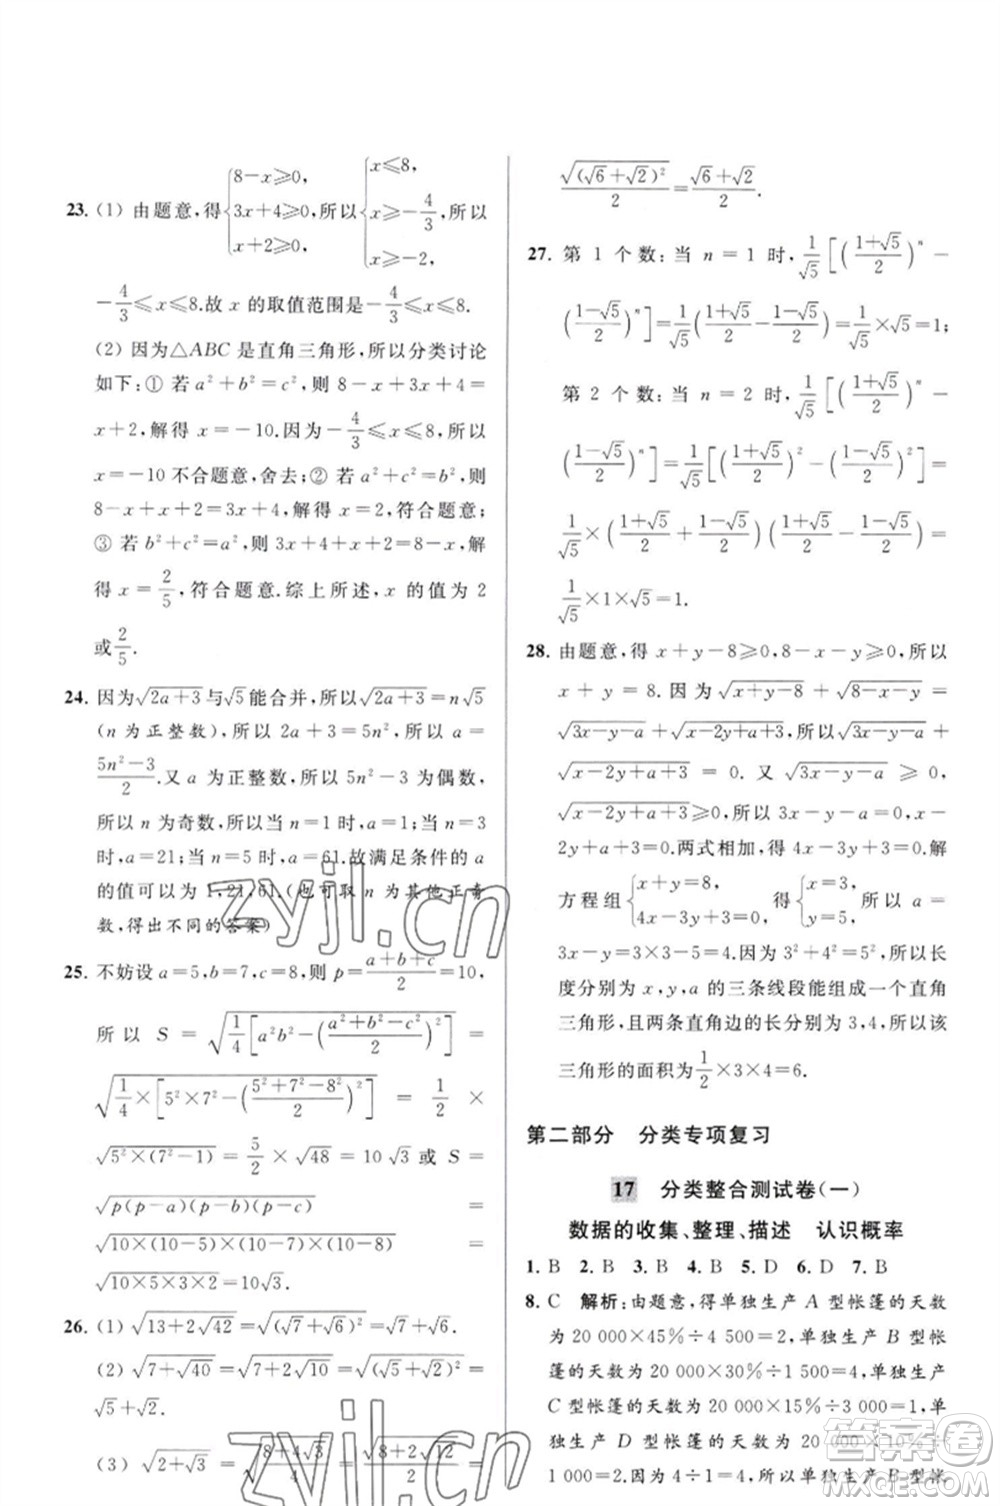 23. (1) 由题意,得{8-x⩾0, 3x+4⩾0, x+2⩾0, 所以{x⩽8, x⩾-4/3, x⩾-2, 所以
-4/3⩽x⩽8.故 x 的取值范围是-4/3⩽x⩽8.
(2) 因为△ABC是直角三角形,所以分类讨论
如下:① 若 a²+b²=c²,则 8-x+3x+4=
x+2,解得 x=-10.因为-4/3⩽x⩽8,所以
x=-10不合题意,舍去;② 若 a²+c²=b²,则
8-x+x+2=3x+4,解得 x=2,符合题意;
③ 若 b²+c²=a²,则 3x+4+x+2=8-x,解
得 x=2/5,符合题意.综上所述,x 的值为 2
或2/5.
24. 因为√(2a+3)与√5能合并,所以√(2a+3)=n√5
(n 为正整数),所以 2a+3=5n²,所以 a=
(5n²-3)/2.又 a 为正整数,所以 5n²-3 为偶数,
所以 n 为奇数,所以当 n=1 时,a=1;当 n=3
时,a=21;当 n=5 时,a=61.故满足条件的 a
的值可以为 1,21,61.(也可取 n 为其他正奇
数,得出不同的答案)
25. 不妨设 a=5,b=7,c=8,则 p=(a+b+c)/2=10,
所以 S=√(1/4[a²b²-((a²+b²-c²)/2)²])=
√(1/4×[5²×7²-((5²+7²-8²)/2)²])=1/2×
√(5²(7²-1))=5/2×√48=10√3 或 S=
√(p(p-a)(p-b)(p-c))=
√(10×(10-5)×(10-7)×(10-8))=
√(10×5×3×2)=10√3.
26. (1) √(13+2√42)=√((√7+√6)²)=√7+√6.
(2) √(7+√40)=√(7+2√10)=√((√5+√2)²)=
√5+√2.
(3) √(2+√3)=√((8+4√3)/4)=√(8+2√12)/2=
√((√6+√2)²)/2=(√6+√2)/2.
27. 第 1 个数:当 n=1 时,1/√5[((1+√5)/2)ⁿ-
((1-√5)/2)ⁿ]=1/√5((1+√5)/2-(1-√5)/2)=1/√5×√5=1;
第 2 个数:当 n=2 时,1/√5[((1+√5)/2)ⁿ-
((1-√5)/2)ⁿ]=1/√5[((1+√5)/2)²-((1-√5)/2)²]=
1/√5×((1+√5)/2+(1-√5)/2)((1+√5)/2-(1-√5)/2)=
1/√5×1×√5=1.
28. 由题意,得 x+y-8⩾0,8-x-y⩾0,所以
x+y=8.因为√(x+y-8)+√(8-x-y)=
√(3x-y-a)+√(x-2y+a+3),所以√(3x-y-a)+
√(x-2y+a+3)=0.又√(3x-y-a)⩾0,
√(x-2y+a+3)⩾0,所以 3x-y-a=0,x-
2y+a+3=0.两式相加,得 4x-3y+3=0.解
方程组{x+y=8, 4x-3y=-3, 得{x=3, y=5, 所以 a=
3x-y=3×3-5=4.因为 3²+4²=5²,所以长
度分别为 x,y,a 的三条线段能组成一个直角
三角形,且两条直角边的长分别为 3,4,所以该
三角形的面积为1/2×3×4=6.
第二部分 分类专项复习
17 分类整合测试卷(一)
数据的收集、整理、描述 认识概率
1. B 2. B 3. B 4. B 5. D 6. D 7. B
8. C 解析:由题意,得单独生产 A 型帐篷的天数
为 20 000×45%÷4 500=2,单独生产 B 型帐
篷的天数为 20 000×30%÷1 500=4,单独生产
C 型帐篷的天数为 20 000×15%÷3 000=1,单
独生产 D 型帐篷的天数为 20 000×10%÷
1 000=2.因为四天中单独生产 B 型帐
zyjl.cn
zyjl
答案卷
MXQE.COM